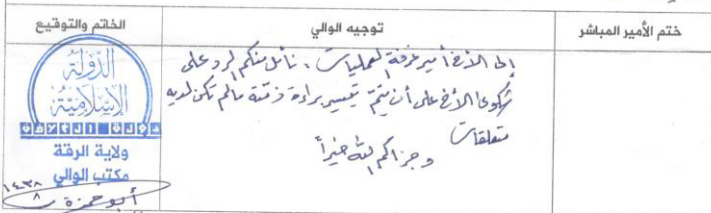 ختم الأمير المباشر
توجيه الوالي
الخاتم والتوقيع
إلى الأخ أمير غرفة العمليات، نأمل منكم الرد على
شكوى الأخ على أن يتم تيسير براءة ذمتة مالم تكن لديه
متعلقات
وجزاكم الله خيراً
الدولة
الإسلامية
ولاية الرقة
مكتب الوالي
١٤٣٨
٨
أبو حمزة